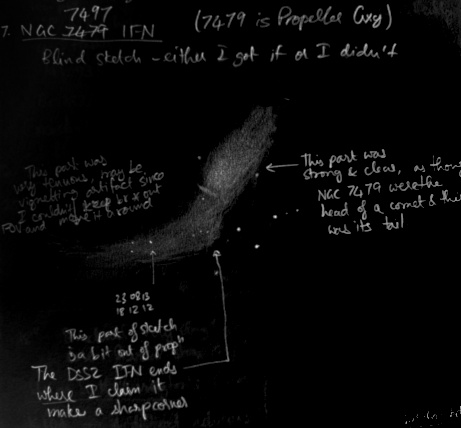 7497
7. NGC 7479 IFN (7479 is Propeller Gxy)
Blind sketch - either I got it or I didn't
This part was
very tenuous, may be
vignetting artifact since
I couldn't keep it out
FOV and move it around
This part was
strong & clear, as though
NGC 7479 were the
head of a comet & this
was its tail
23 08 13
18 12 12
This part of sketch
is a bit out of prop"
The DSS2 IFN ends
where I claim it
make a sharp corner